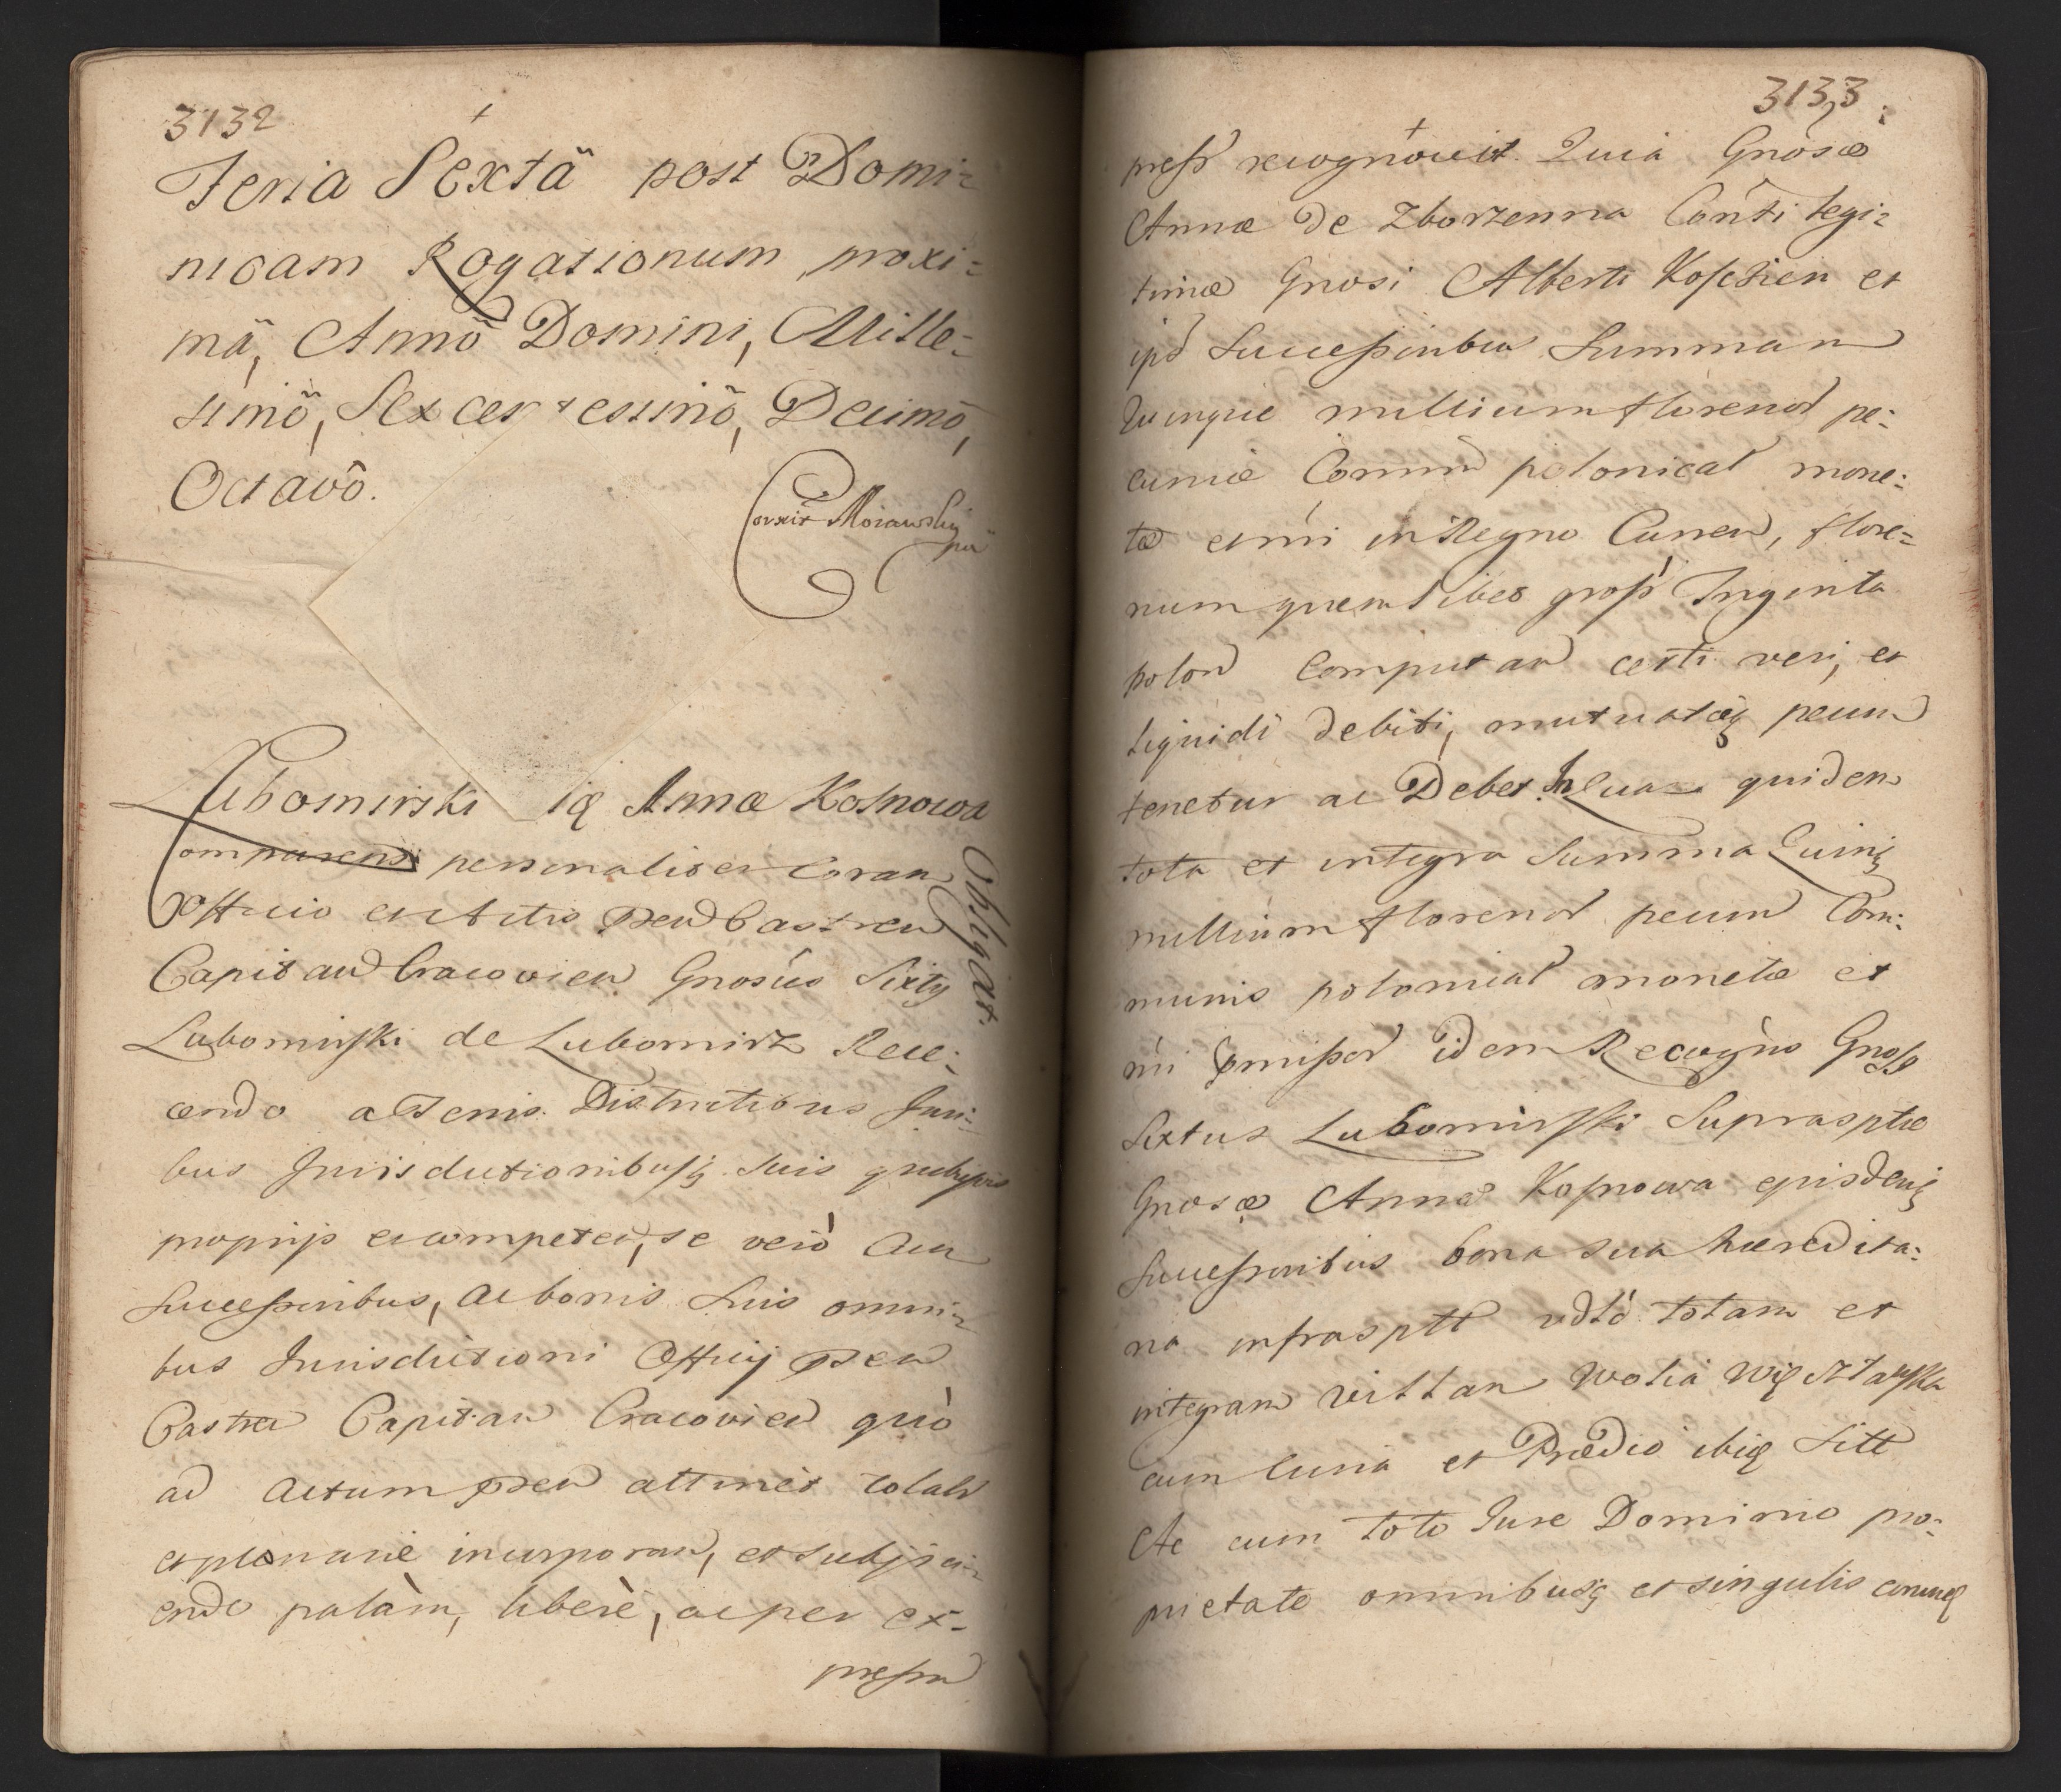 3132
+
Feria Sexta post Domi=
nicam Rogationum proxi=
mã, Annõ Domini, Mille=
simõ, Sexcentesimõ, Decimõ,
Octavõ.
Correxit Morawsky
Lubomirski Annæ Kosnowa
Comparens personaliter Coram
Officio et Actis pnd Castren
Capitan Cracovien Gnosus Sixty
Obligat.
Lubomirski de Lubomirz Rece=
dendo a Terris Districtibus Juri=
bus Jurisdictionibusq suis quibusvis
proprijs et competen, se verò cum
Successoribus, ac bonis Suis omni=
bus Jurisdictioni Officij pnd
Castren Capitan Cracovien quò
ad actum pnd attinet totalr
et plenarie incorporan, et subjici=
endo palàm, liberè, ac per ex=
pressum
3133
+
press recognovit. Quia Gnosæ
Annæ de Zborzenna Conti legi=
timæ Gnosi Alberti Kossien et
ips Successoribus Summam
Quinque millium florenor pe=
cuniæ Commun polonical mone=
tæ et nri in Regno Curren, flore=
num quemlibet gross Triginta
polon computan certi veri, et
liquidi debiti, mutuatæq pecun
tenetur ac Debet In qua quidem
tota et integra Summa Quinq
millium florenor pecun Com=
munis polonical monetæ et
nri pmissor idem Recogno Gnoss
Sixtus Lubomirski Suprasptæ
Gnosæ Annæ Kosnowa ejusdemq
Successoribus bona sua hæredita=
ria infrasptt vdlt totam et
integram villam Wolia Więcztawska
cum Curia et Prædio ibiq Sitt
Ac cum toto Jure Dominio pro=
prietate omnibusq et singulis